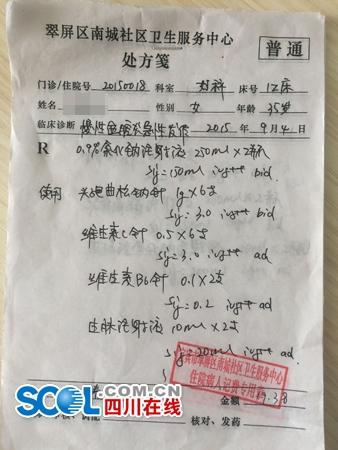 翠屏区南城社区卫生服务中心
普通
处方笺
门诊/住院号 20150018 科室 床号 12床
姓名 性别 女 年龄 35岁
临床诊断 慢性盆腔炎急性发作 2015年 9月4日
R 0.9%氯化钠注射液 250ml×2瓶
Sig: 150ml ivgtt bid
头孢曲松钠针 1g×6支
Sig: 3.0 ivgtt bid
维生素C针 0.5×6支
Sig: 3.0 ivgtt qd
维生素B6针 0.1×2支
Sig: 0.2 ivgtt qd
注射液 10ml×2支
Sig: 20ml ivgtt qd
宜宾市翠屏区南城社区卫生服务中心
住院病人记费专用章
金额
审核、调配 核对、发药
SCOL.COM.CN
四川在线